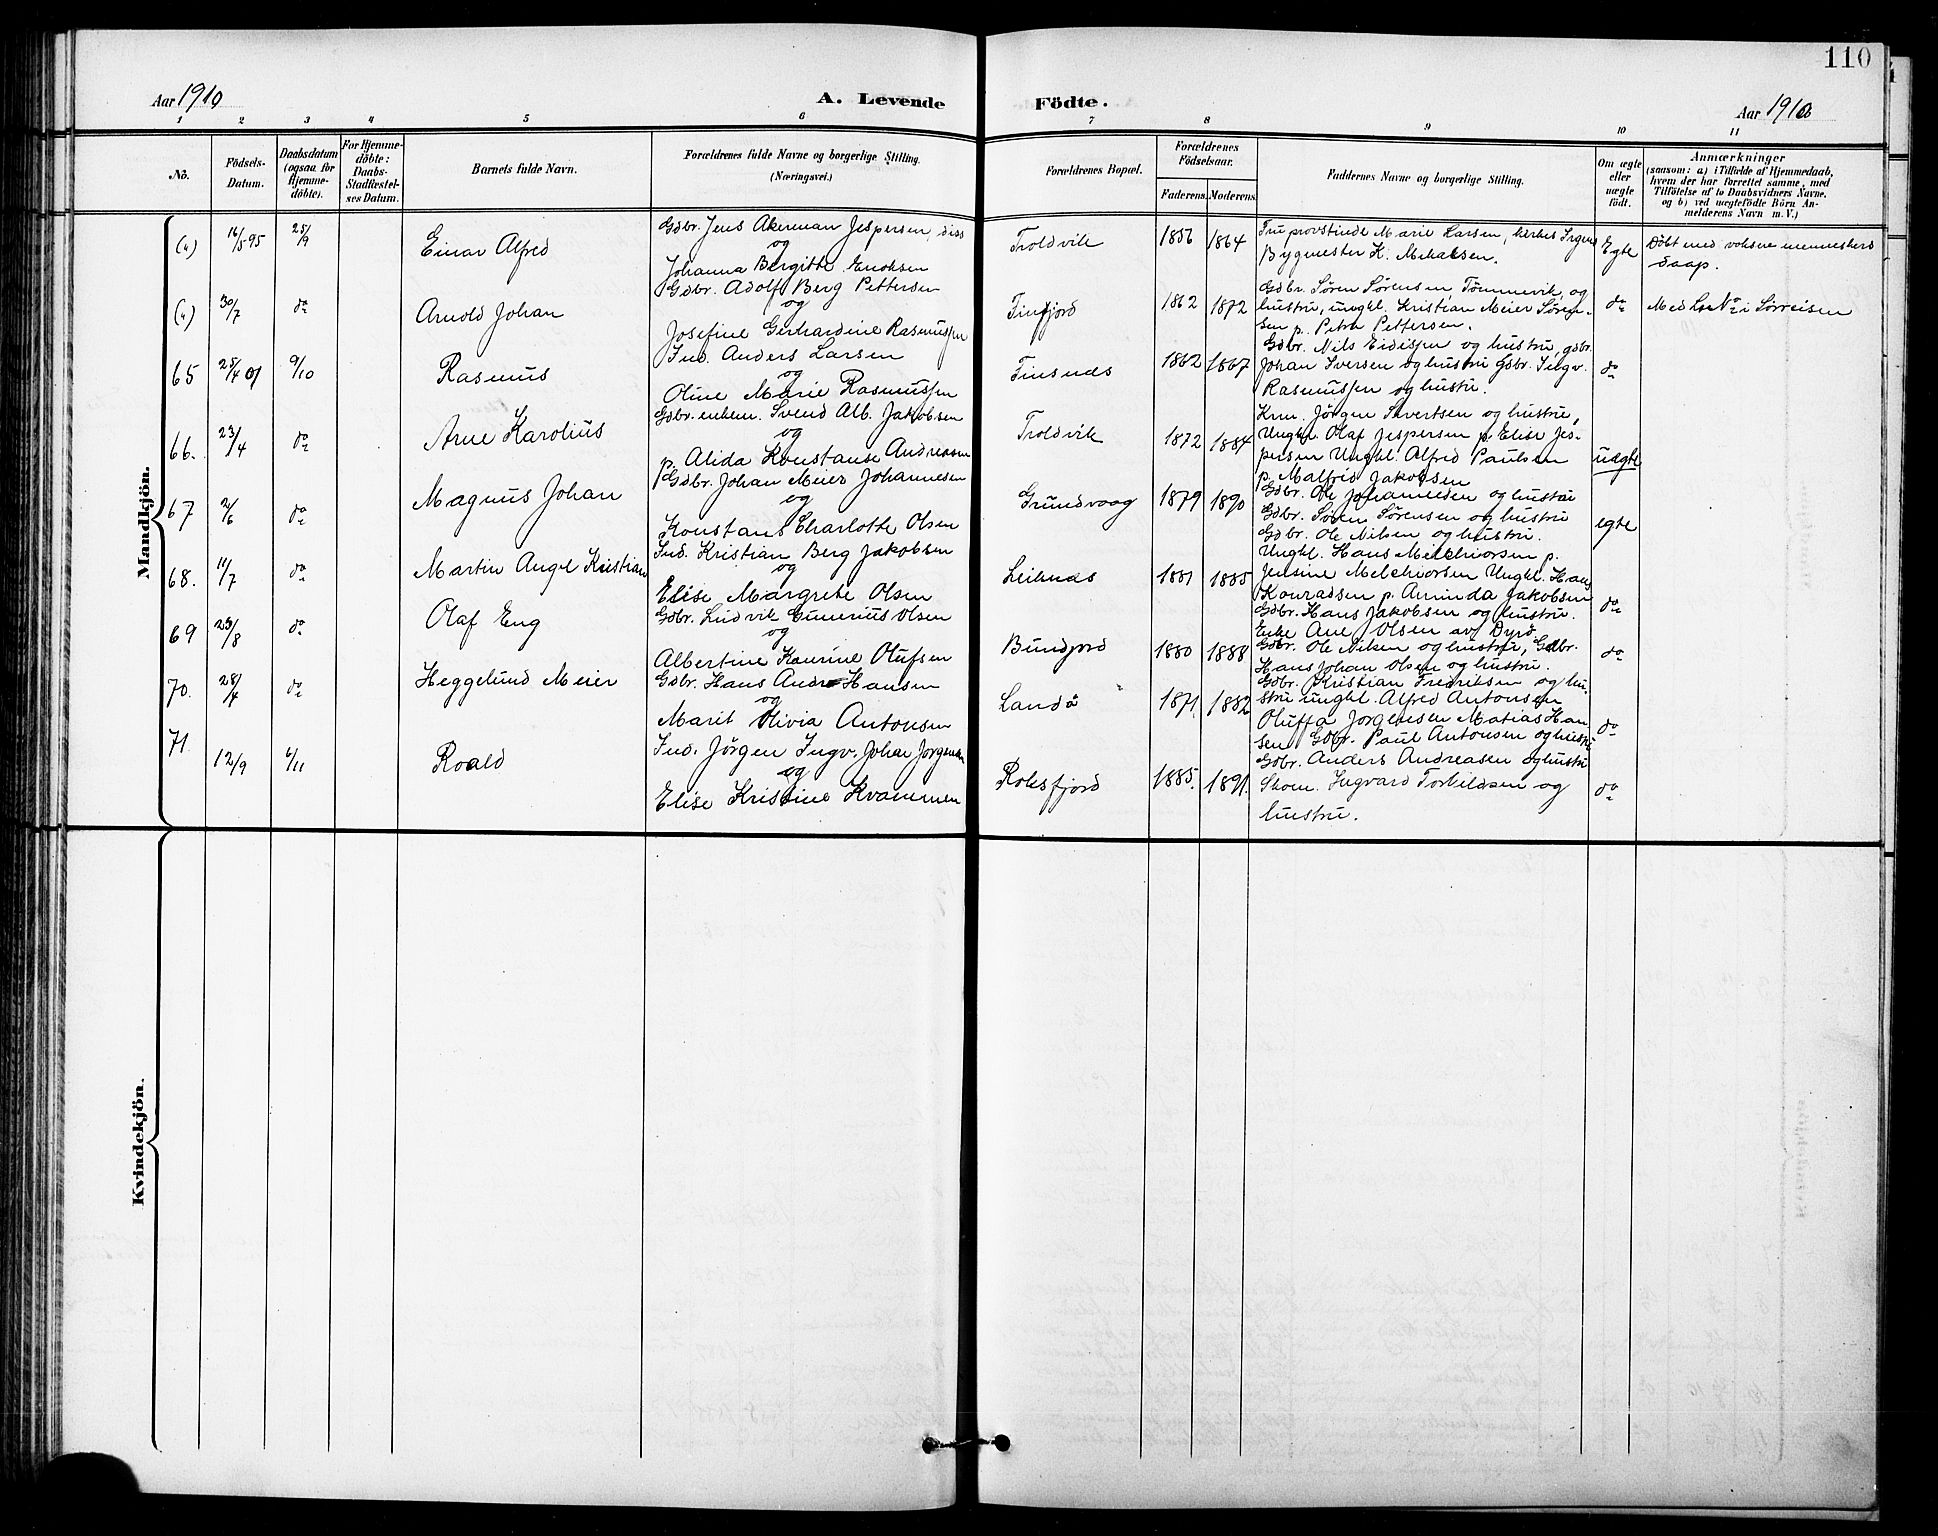 110
Aar 1910
A. Levende
Födte.
Aar 1910
1 2 3 4 5 6 7 8 9 10 11
No.
Födsels-Datum.
Daabsdatum (ogsaa for Hjemme-döbte).
For Hjemme-döbte: Daabs-Stadfæstel-ses Datum.
Barnets fulde Navn.
Forældrenes fulde Navne og borgerlige Stilling. (Næringsvei.)
Forældrenes Bopæl.
Forældrenes Födselsaar.
Faderens. Moderens.
Faddernes Navne og borgerlige Stilling.
Om ægte eller uægte födt.
Anmærkninger
(saasom: a) i Tilfælde af Hjemmedaab,
hvem der har forrettet samme, med
Tilföielse af to Daabsvidners Navne.
og b) ved uægtefödte Börn An-
melderens Navn m. V.)
Mandkjön.
(4) 16/5 95 25/9 Einar Alfred
Gdbr. Jens Akerman Jespersen, diss
og
Johanna Bergitte Eriksen
Troldvik 1856 1864
Fru provstinde Marie Larsen, kirkes
Bygmester K. Mikalsen.
Egte
Döbt med voksne menneskers
daap.
(4) 30/7 do Arnold Johan
Gdbr. Adolf Berg Pettersen
og
Josefine Gerhardine Rasmussen
Finfjord 1862 1872
Gdbr. Søren Sørensen Tømmevik og
hustru, ungkl. Kristian Meier Søren-
sen p. Petra Pettersen.
do
Med i Sørreisen
65 25/4 01 9/10 Rasmus
Ind. Anders Larsen
og
Oline Marie Rasmussen
Finsnes 1862 1867
Gdbr. Nils Eidissen og hustru, gdbr.
Johan Iversen og hustru Gdbr. Ingv.
Rasmussen og hustru.
do
66. 23/4 do Arne Karolius
Gdbr. enkem. Svend Alb. Jakobsen
og
p. Alida Konstanse Andreassen
Troldvik 1872 1884
Krm. Jörgen Sivertsen og hustru,
Ungkl. Olaf Jespersen p. Elise Jes-
persen Ungkl. Alfred Paulsen
p. Malfrid Jakobsen
uægte
67 2/6 do Magnus Johan
Gdbr. Johan Meier Johannesen
og
Konstans Charlotte Olsen
Grundvaag 1879 1890
Gdbr. Ole Johannesen og hustru
Gdbr. Søren Sørensen og hustru
Gdbr. Ole Nilsen og hustru.
egte
68. 11/7 do Martin Angel Kristian
Ind. Kristian Berg Jakobsen
og
Elise Margrete Olsen
Leiknes 1881 1885
Ungkl. Hans Melchiorsen p.
Jensine Melchiorsen Ungkl. Hans
Konradsen p. Aminda Jakobsen
Gdbr. Hans Jakobsen og hustru.
do
69 23/8 do Olaf Eng
Gdbr. Ludvik Gunerius Olsen
og
Albertine Kaurine Olufsen
Bundjord 1880 1888
Enke Ane Olsen av Dyrö
Gdbr. Ole Nilsen og hustru, Gdbr.
Hans Johan Olsen og hustru.
do
70. 28/4 do Heggelund Meier
Gdbr. Hans Andr. Hansen
og
Marit Olivia Antonsen
Landå 1871 1882
Gdbr. Kristian Fredriksen og hu-
stru ungkl. Alfred Antonsen
Oluffa Jorgensen Matias Han
sen Gdbr. Paul Antonsen og hustru
do
71 12/9 6/11 Roald
Ind. Jörgen Ingv. Johan Jörgensen
og
Elise Kristine Kvammen
Rolsfjord 1885. 1891.
Gdbr. Anders Andreasen og hustru
Skom. Ingvard Torkildsen og
hustru.
do
Kvindekjön.